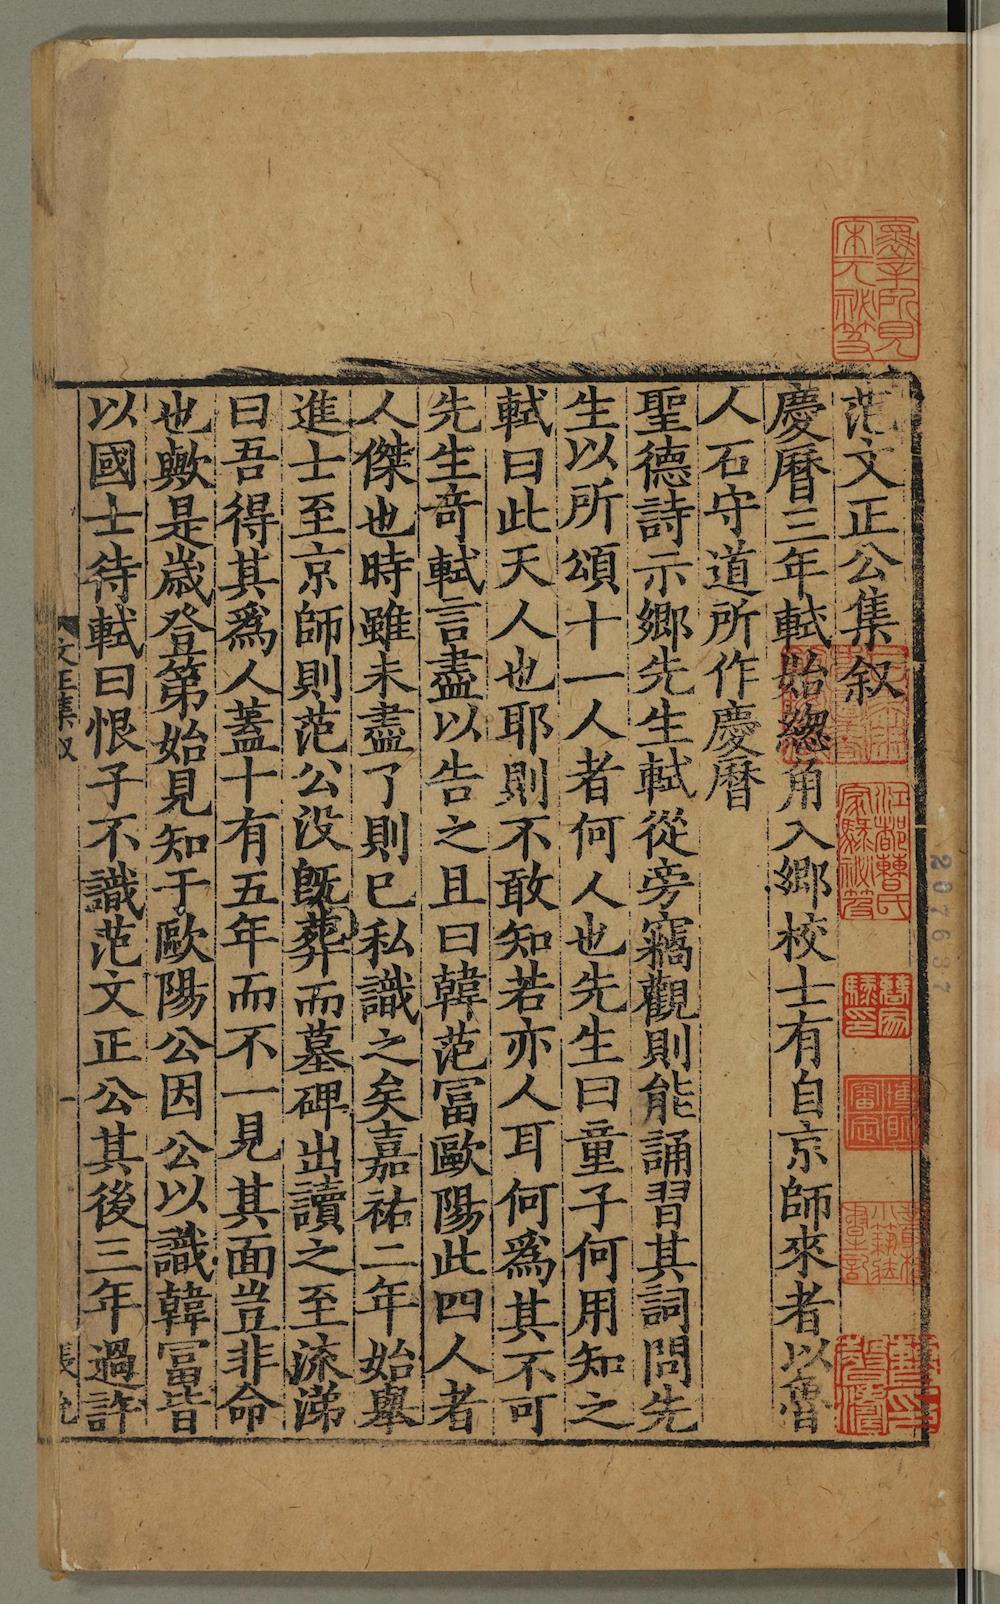 范文正公集叙
慶曆三年軾始緫角入鄉校士有自京師來者以魯
人石守道所作慶曆
聖德詩示鄉先生軾從旁竊觀則能誦習其詞問先
生以所頌十一人者何人也先生曰童子何用知之
軾曰此天人也耶則不敢知若亦人耳何爲其不可
先生奇軾言盡以告之且曰韓范富歐陽此四人者
人傑也時雖未盡了則已私識之矣嘉祐二年始舉
進士至京師則范公没旣葬而墓碑出讀之至流涕
曰吾得其爲人蓋十有五年而不一見其面豈非命
也歟是歲登第始見知于歐陽公因公以識韓冨皆
以國士待軾曰恨子不識范文正公其後三年過許
文正集叙
一
寒雲所見宋元祕笈
江都曹氏家駱祕笈
207637